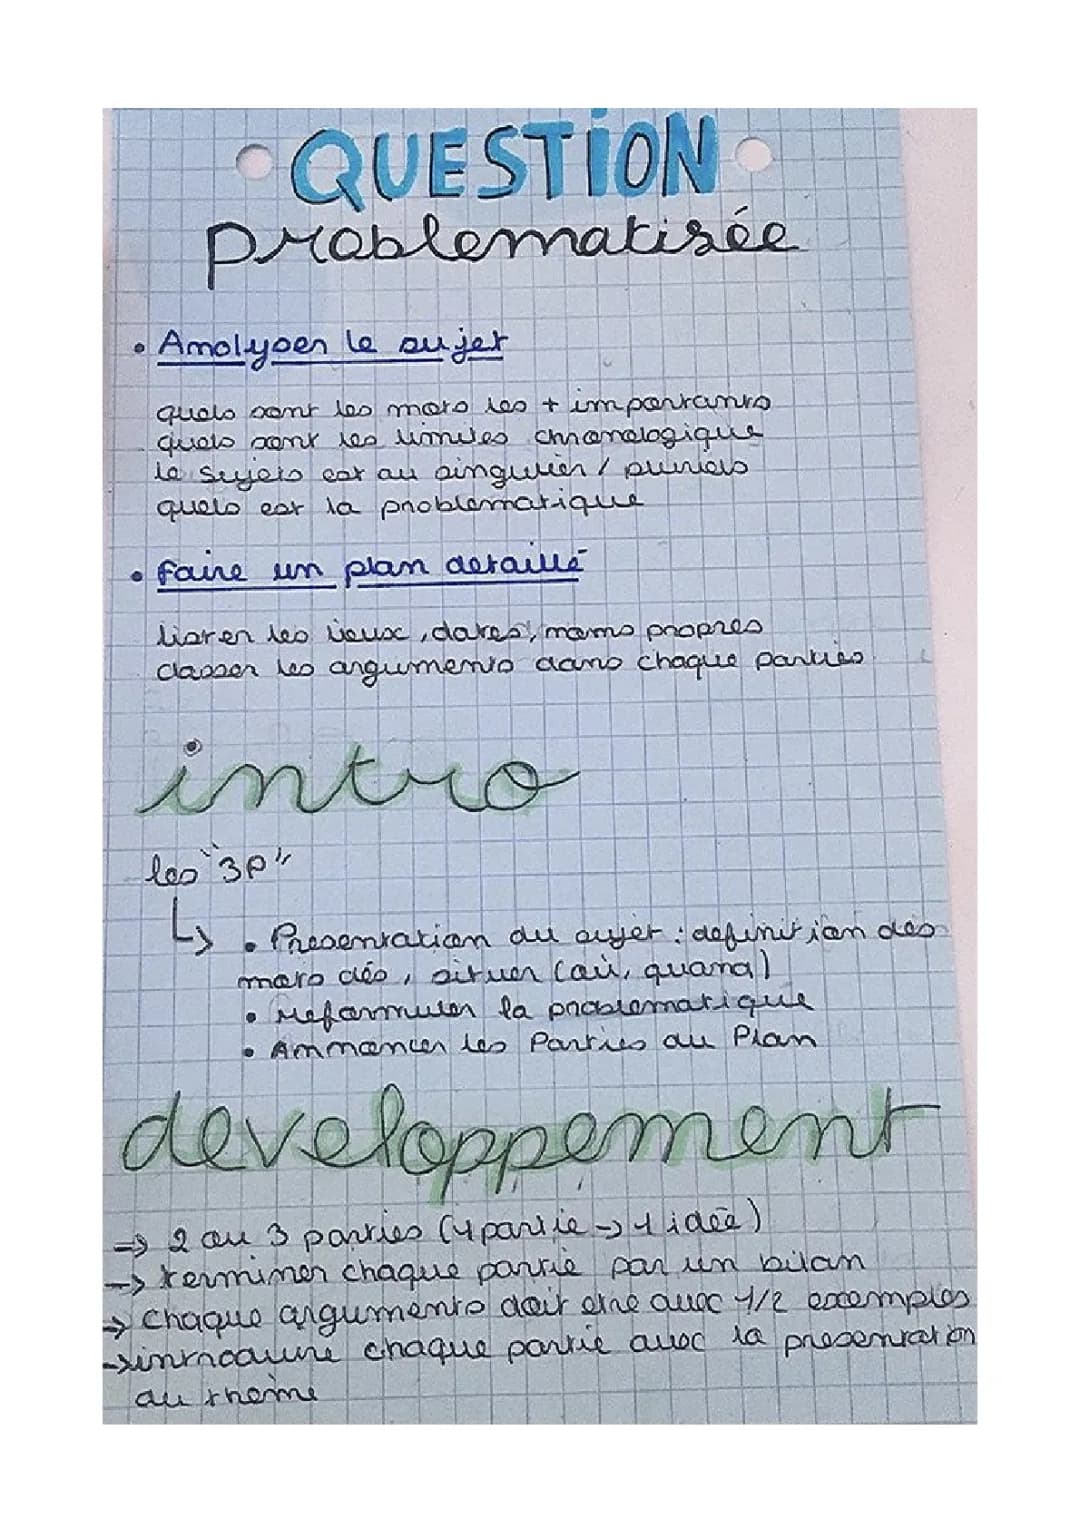 QUESTION
problematisée
• Analyser le sujet
quels sont les mots les + importants
quels sont les limites chronologique
le sujets est au singulier / pluriels
quels est la problématique
• faire un plan detaillé
lister les lieux, dates, noms propres
classer les arguments dans chaque parties
intro
les "3P"
↳ • Presentation du sujet : definition des
mots clés, situer (où, quand)
• reformuler la problematique
• Annoncer les Parties du Plan
developpement
→ 2 ou 3 parties (1 partie → 1 idée)
→ terminer chaque partie par un bilan
→ chaque arguments doit etre avec 1/2 exemples
→ introduire chaque partie avec la presentation
du theme